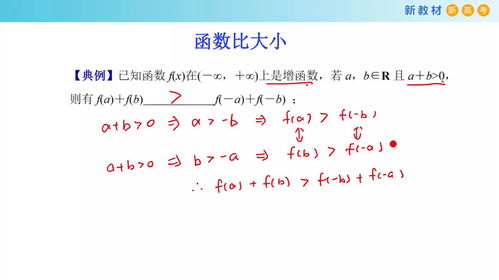 新教材 新高考
函数比大小
【典例】已知函数 f(x)在(－∞，+∞)上是增函数，若 a，b∈R 且 a+b>0，
则有 f(a)+f(b) > f(－a)+f(－b)；
a+b>0 ⇒ a>-b ⇒ f(a) > f(-b)
a+b>0 ⇒ b>-a ⇒ f(b) > f(-a)
∴ f(a) + f(b) > f(-b) + f(-a)